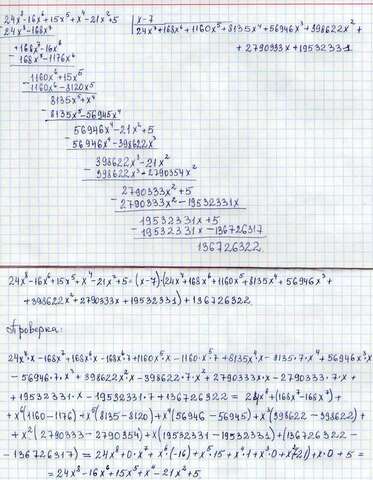 24x⁸-16x⁶+15x⁵+x⁴-21x²+5 | x-7
24x⁸-168x⁷ 24x⁷+168x⁶+1160x⁵+8135x⁴+56946x³+398622x²+
+168x⁷-16x⁶ +2790333x+19532331
- 168x⁷-1176x⁶
1160x⁶+15x⁵
- 1160x⁶-8120x⁵
8135x⁵+x⁴
- 8135x⁵-56945x⁴
56946x⁴-21x²+5
- 56946x⁴-398622x³
398622x³-21x²
- 398622x³+2790354x²
2790333x²+5
- 2790333x²-19532331x
19532331x+5
- 19532331x-136726317
136726322
24x⁸-16x⁶+15x⁵+x⁴-21x²+5=(x-7)·(24x⁷+168x⁶+1160x⁵+8135x⁴+56946x³+
+398622x²+2790333x+19532331)+136726322
Проверка:
24x⁷·x-168x⁷+168x⁶x-168x⁶·7+1160x⁵x-1160x⁵·7+8135x⁴x-8135·7·x⁴+56946x³x
-56946·7·x³+398622x²·x-398622·7·x²+2790333x·x-2790333·7·x+
+19532331·x-19532331·7+136726322=24x⁸+(168x⁷-168x⁷)+
+x⁶(1160-1176)+x⁵(8135-8120)+x⁴(56946-56945)+x³(398622-398622)+
+x²(2790333-2790354)+x(19532331-19532331)+(136726322-
-136726317)=24x⁸+0·x⁷+x⁶·(-16)+x⁵·15+x⁴·1+x³·0+x²(-21)+x·0+5=
=24x⁸-16x⁶+15x⁵+x⁴-21x²+5